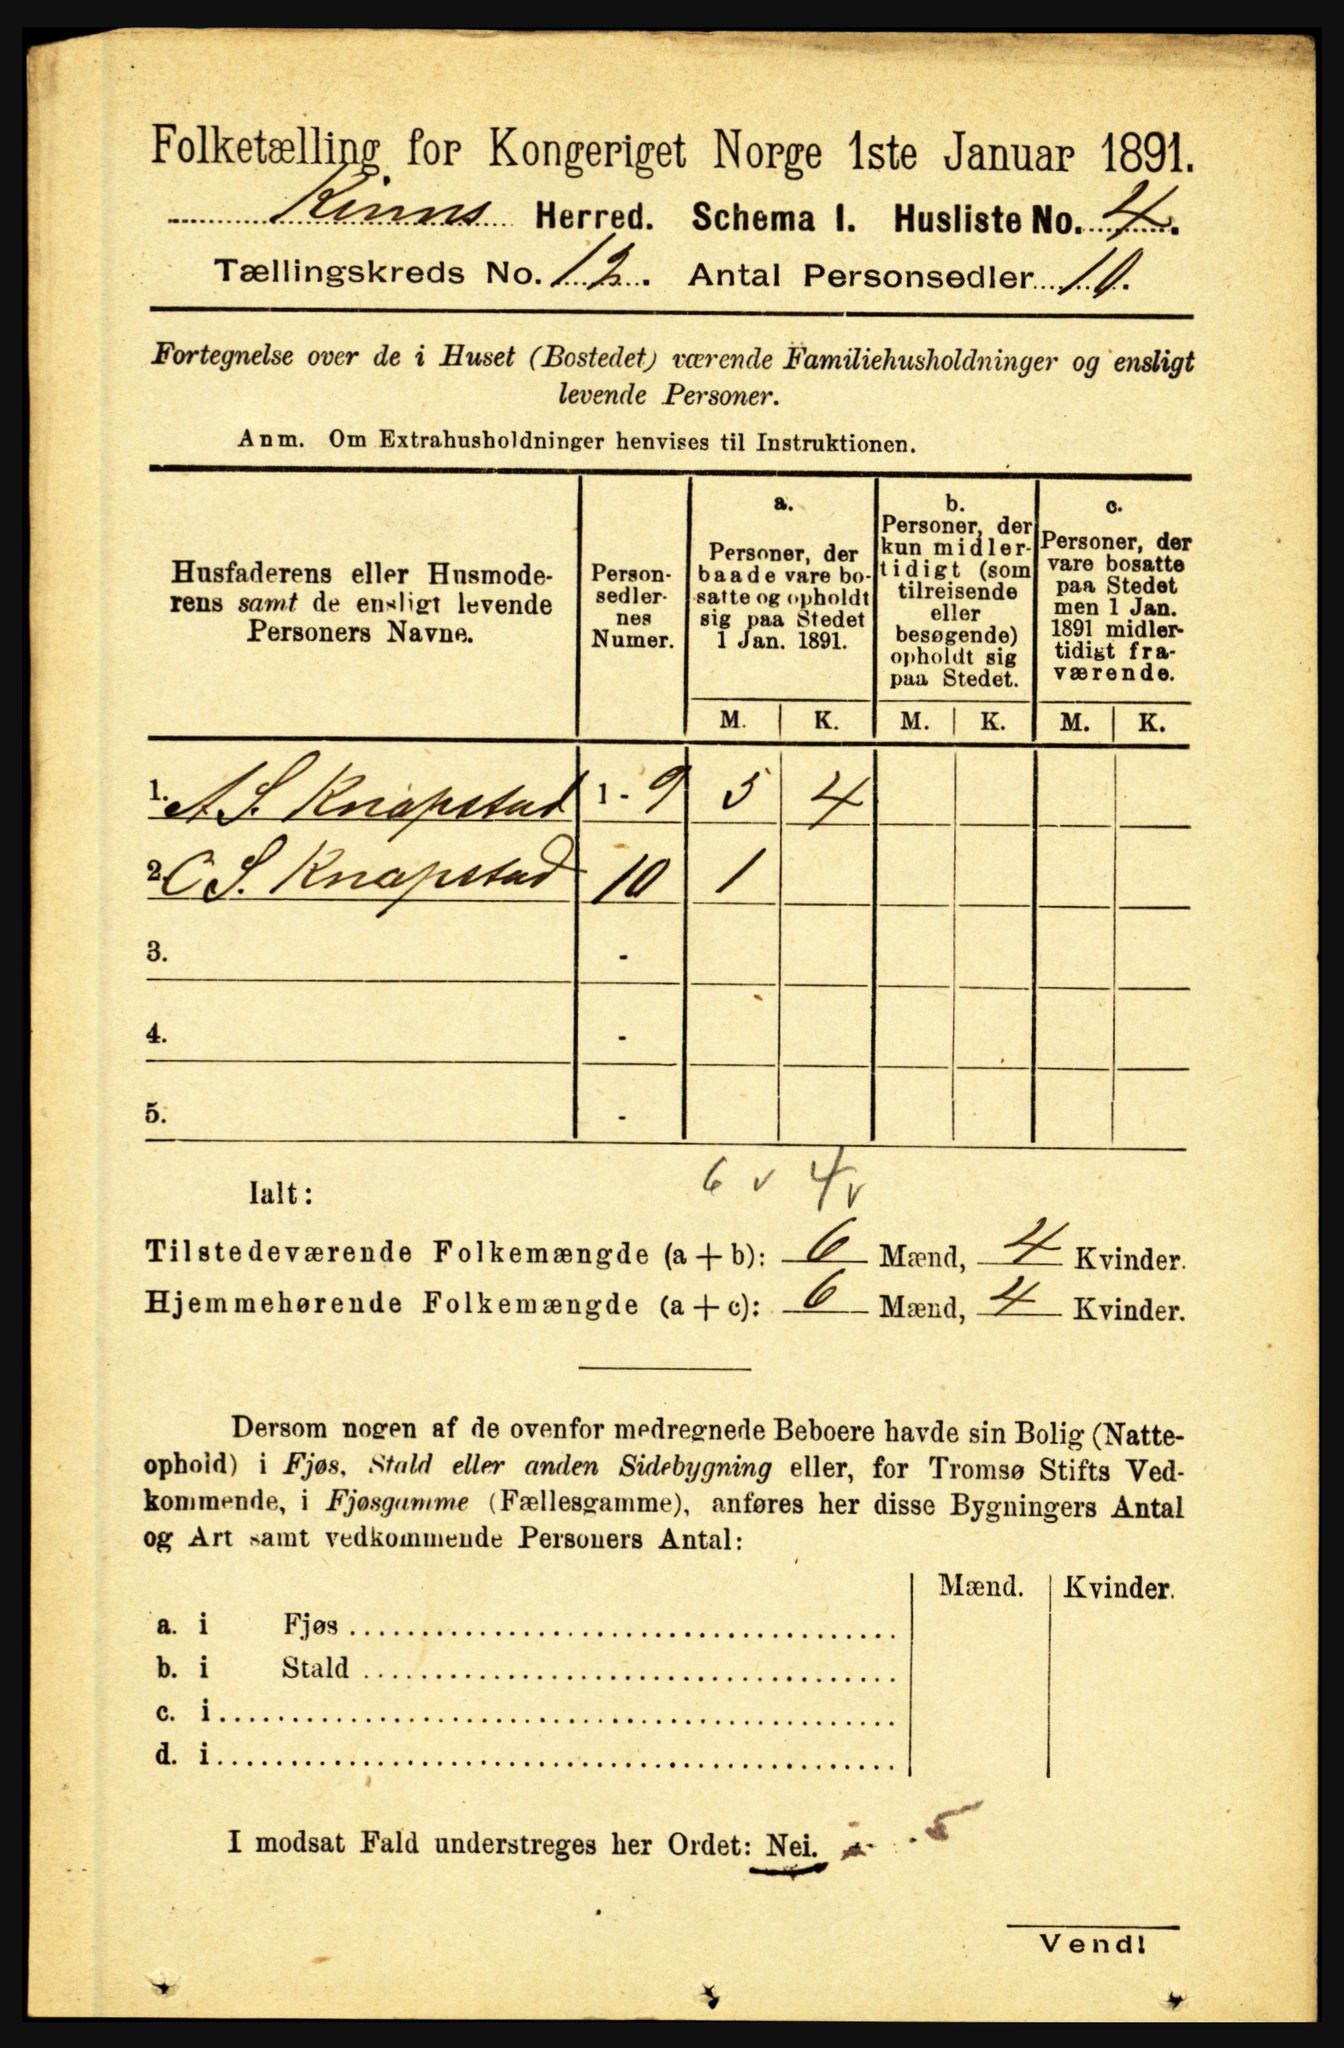 Folketælling for Kongeriget Norge 1ste Januar 1891.
Kinns Herred. Schema I. Husliste No. 4.
Tællingskreds No. 12. Antal Personsedler 10.
Fortegnelse over de i Huset (Bostedet) værende Familiehusholdninger og ensligt
levende Personer.
Anm. Om Extrahusholdninger henvises til Instruktionen.
Husfaderens eller Husmode-
rens samt de ensligt levende
Personers Navne.
Person-
sedler-
nes
Numer.
a.
Personer, der
baade vare bo-
satte og opholdt
sig paa Stedet
1 Jan. 1891.
b.
Personer, der
kun midler-
tidigt (som
tilreisende
eller
besøgende)
opholdt sig
paa Stedet.
c.
Personer, der
vare bosatte
paa Stedet
men 1 Jan.
1891 midler-
tidigt fra-
værende.
M. K. M. K. M. K.
1. A S. Knapstad 1 - 9 5 4
2. C S. Knapstad 10 1
3. -
4. -
5. -
6 v 4 v
Ialt:
Tilstedeværende Folkemængde (a + b): 6 Mænd, 4 Kvinder.
Hjemmehørende Folkemængde (a + c): 6 Mænd, 4 Kvinder.
Dersom nogen af de ovenfor medregnede Beboere havde sin Bolig (Natte-
ophold) i Fjøs, Stald eller anden Sidebygning eller, for Tromsø Stifts Ved-
kommende, i Fjøsgamme (Fællesgamme), anføres her disse Bygningers Antal
og Art samt vedkommende Personers Antal:
Mænd. Kvinder.
a. i Fjøs
b. i Stald
c. i
d. i
I modsat Fald understreges her Ordet: Nei. 5
Vend!